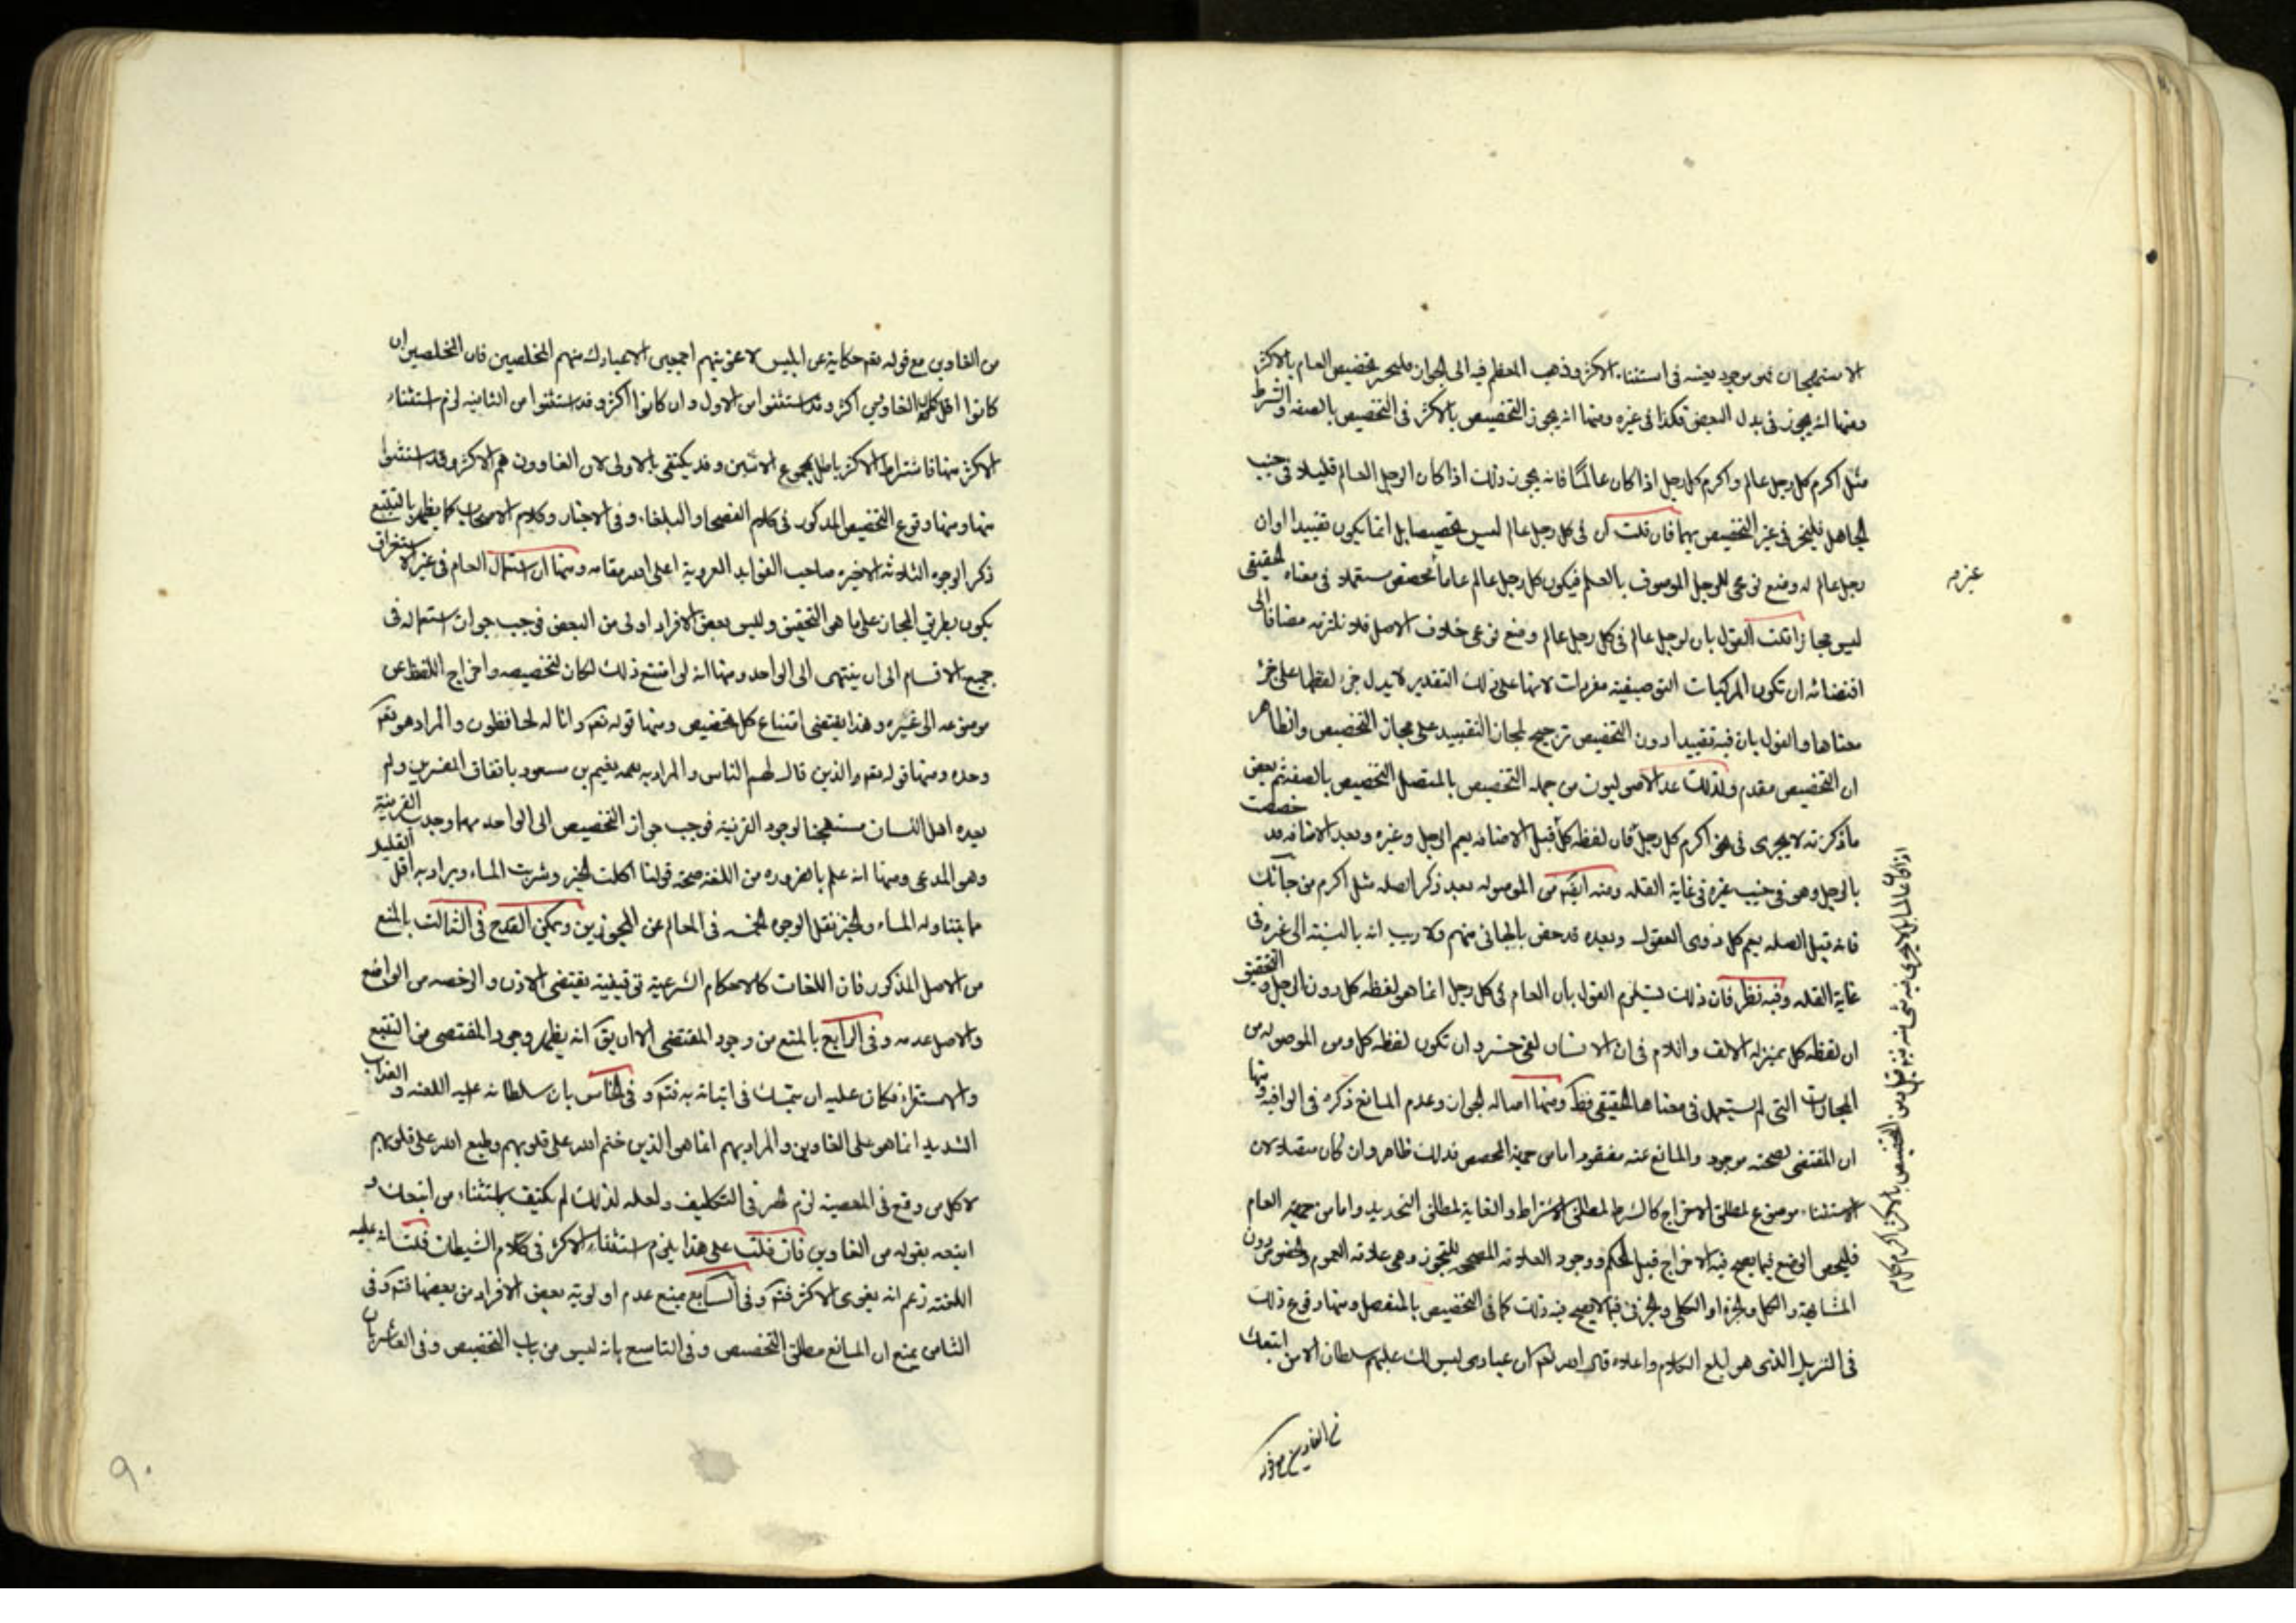 الاستهجان فهو موجود بعينه فى استثناء الاكثر وذهب المعظم فيه الى الجواز فليجز تخصيص العام بالاكثر
ومنها انه يجوز فى بدل البعض فكذا فى غيره ومنها انه يجوز التخصيص بالاكثر فى التخصيص بالصفه والشرط
مثل اكرم كل رجل عالم واكرم كل رجل اذا كان عالما فانه يجوز ذلك اذا كان الرجل العالم قليلا فى جنب
الجاهل فليجز فى غير التخصيص بهما فان قلت ان فى كل رجل عالم ليس تخصيصا بل انما يكون تقييدا اوان
رجل عالم له وضع نوعى للرجل الموصوف بالعلم فيكون كل رجل عالم عاما مخصص مستعملا فى معناه الحقيقى
ليس مجازا قلت القول بان لرجل عالم فى كل رجل عالم وضع نوعى خلاف الاصل فلا نلتزمه مضافا الى
اقتضائه ان تكون المركبات التوصيفية مفردات لانها على ذلك التقدير لا يدل جزء لفظها على جزء
معناها والقول بان فيه تقييدا دون التخصيص ترجيح لمجاز التقييد على مجاز التخصيص والظاهر
ان التخصيص مقدم ولذلك عد الاصوليون من جمله التخصيص بالمتصل التخصيص بالصفة نعم بعض
ما ذكرته لا يجرى فى نحو اكرم كل رجل فان لفظه كل قبل الاضافه يعم الرجل وغيره وبعد الاضافه قد خصصت
بالرجل وهو فى جنب غيره فى غاية القله ومنه ايضا من الموصوله بعد ذكر الصله مثل اكرم من جاءك
فانه قبل الصله يعم كل ذوى العقول وبعده قد خص بالجائى منهم ولا ريب انه بالنسبة الى غيره فى
غاية القله وفيه نظر فان ذلك يستلزم القول بان العام فى كل رجل انما هو لفظه كل دون الرجل والتحقيق
ان لفظه كل بمنزله الالف واللام فى ان الانسان لفى خسر وان تكون لفظه كل ومن الموصوله من
المجازات التى لم يستعمل فى معناها الحقيقى قط ومنها اصاله الجواز وعدم المانع ذكره فى الوافيه ومنها
ان المقتضى لصحته موجود والمانع عنه مفقود اما من جهة المخصص فذلك ظاهر وان كان متصلا لان
الاستثناء موضوع لمطلق الاخراج كالشرط لمطلق الاشتراط والغاية لمطلق التحديد واما من جهة العام
فليخص الوضع فيما يصح فيه الاخراج قبل الحكم ووجود العلاقه المصححه للتجوز وهى علاقه العموم والخصوص دون
المشابهة والكل والجزء او الكلى والجزئى فيما لا يصح فيه ذلك كما فى التخصيص بالمنفصل ومنها وقوع ذلك
فى التنزيل الذى هو ابلغ الكلام واعلاه قال الله تعالى ان عبادى ليس لك عليهم سلطان الا من اتبعك
من الغاوين مع قوله
غيره
من الغاوين مع قوله تعم حكاية عن ابليس لاغوينهم اجمعين الا عبادك منهم المخلصين فان المخلصين ان
كانوا اقل كان الغاوين اكثر وقد استثنوا من الاول وان كانوا اكثر وقد استثنوا من الثانيه لزم استثناء
الاكثر منها فاشتراط الاكثر باطل بمجموع الاثنين وقد يكتفى بالاولى لان الغاوون هم الاكثر وقد استثنوا
منها ومنها وقوع التخصيص المذكور فى كلام الفصحاء والبلغاء وفى الاخبار وكلام الاصحاب كما يظهر بالتتبع
ذكر الوجوه الثلاثه الاخيره صاحب الفوايد الغروية اعلى الله مقامه ومنها ان استعمال العام فى غير الاستغراق
يكون بطريق المجاز على ما هو التحقيق وليس بعض الافراد اولى من البعض فوجب جواز استعماله فى
جميع الاقسام الى ان ينتهى الى الواحد ومنها انه لو امتنع ذلك لكان لتخصيصه واخراج اللفظ عن
موضوعه الى غيره وهذا يقتضى امتناع كل تخصيص ومنها قوله تعم وانا له لحافظون والمراد هو تعم
وحده ومنها قوله تعم والذين قال لهم الناس والمراد به نعيم بن مسعود باتفاق المفسرين ولم
يعده اهل اللسان مستهجنا لوجود القرنية فوجب جواز التخصيص الى الواحد مهما وجدت القرينة
وهو المدعى ومنها انه علم بالضروره من اللغة صحة قولنا اكلت الخبز وشربت الماء ويراد به اقل القليل
مما يتناوله الماء والخبز نقل الوجوه الخمسه فى المعالم عن المجوزين ويمكن القدح فى الثالث بالمنع
من الاصل المذكور فان اللغات كالاحكام الشرعية توقيفية يقتضى الاذن والرخصه من الواضع
والاصل عدمه وفى الرابع بالمنع من وجود المقتضى الا ان يق انه يظهر وجود المقتضى من التتبع
والاستقراء فكان عليه ان يتمسك فى اثباته به فتم وفى الخامس بان سلطانه عليه اللعنه والعذاب
الشديد انما هو على الغاوين والمراد بهم انما هو الذين ختم الله على قلوبهم وطبع الله على قلوبهم
لا كل من وقع فى المعصية لزم فى التكليف ولعله لذلك لم يكتف باستثناء من اتبعك و
ابتعه بقوله من الغاوين فان قلت على هذا يلزم استثناء الاكثر فى كلام الشيطان قلت انه عليه
اللعنة زعم انه يغوى الاكثر فتم وفى السابع بمنع عدم اولوية بعض الافراد من بعضها فتم وفى
الثامن بمنع ان المانع مطلق التخصيص وفى التاسع بانه ليس من باب التخصيص وفى العاشر بان
٩٠